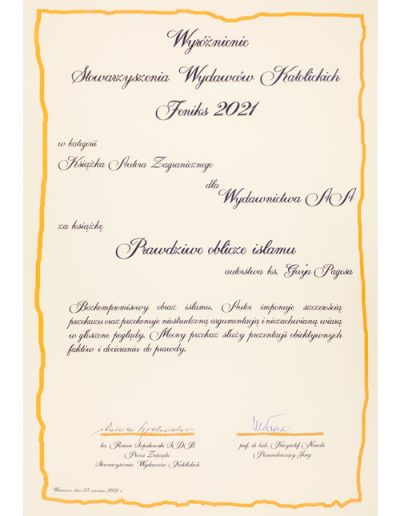 Wyróżnienie
Stowarzyszenia Wydawców Katolickich
Feniks 2021
w kategorii
Książka Autora Zagranicznego
dla
Wydawnictwa AA
za książkę
Prawdziwe oblicze islamu
autorstwa ks. Guya Pagesa
Bezkompromisowy obraz islamu. Autor imponuje szczerością
przekazu oraz przekonuje niestrudzoną argumentacją i niezachwianą wiarą
w głoszone poglądy. Mocny przekaz służy prezentacji obiektywnych
faktów i docieraniu do prawdy.
ks. Roman Szpakowski SDB
Prezes Zarządu
Stowarzyszenia Wydawców Katolickich
prof. dr hab. Krzysztof Narecki
Przewodniczący Jury
Warszawa, dnia 23 września 2021 r.